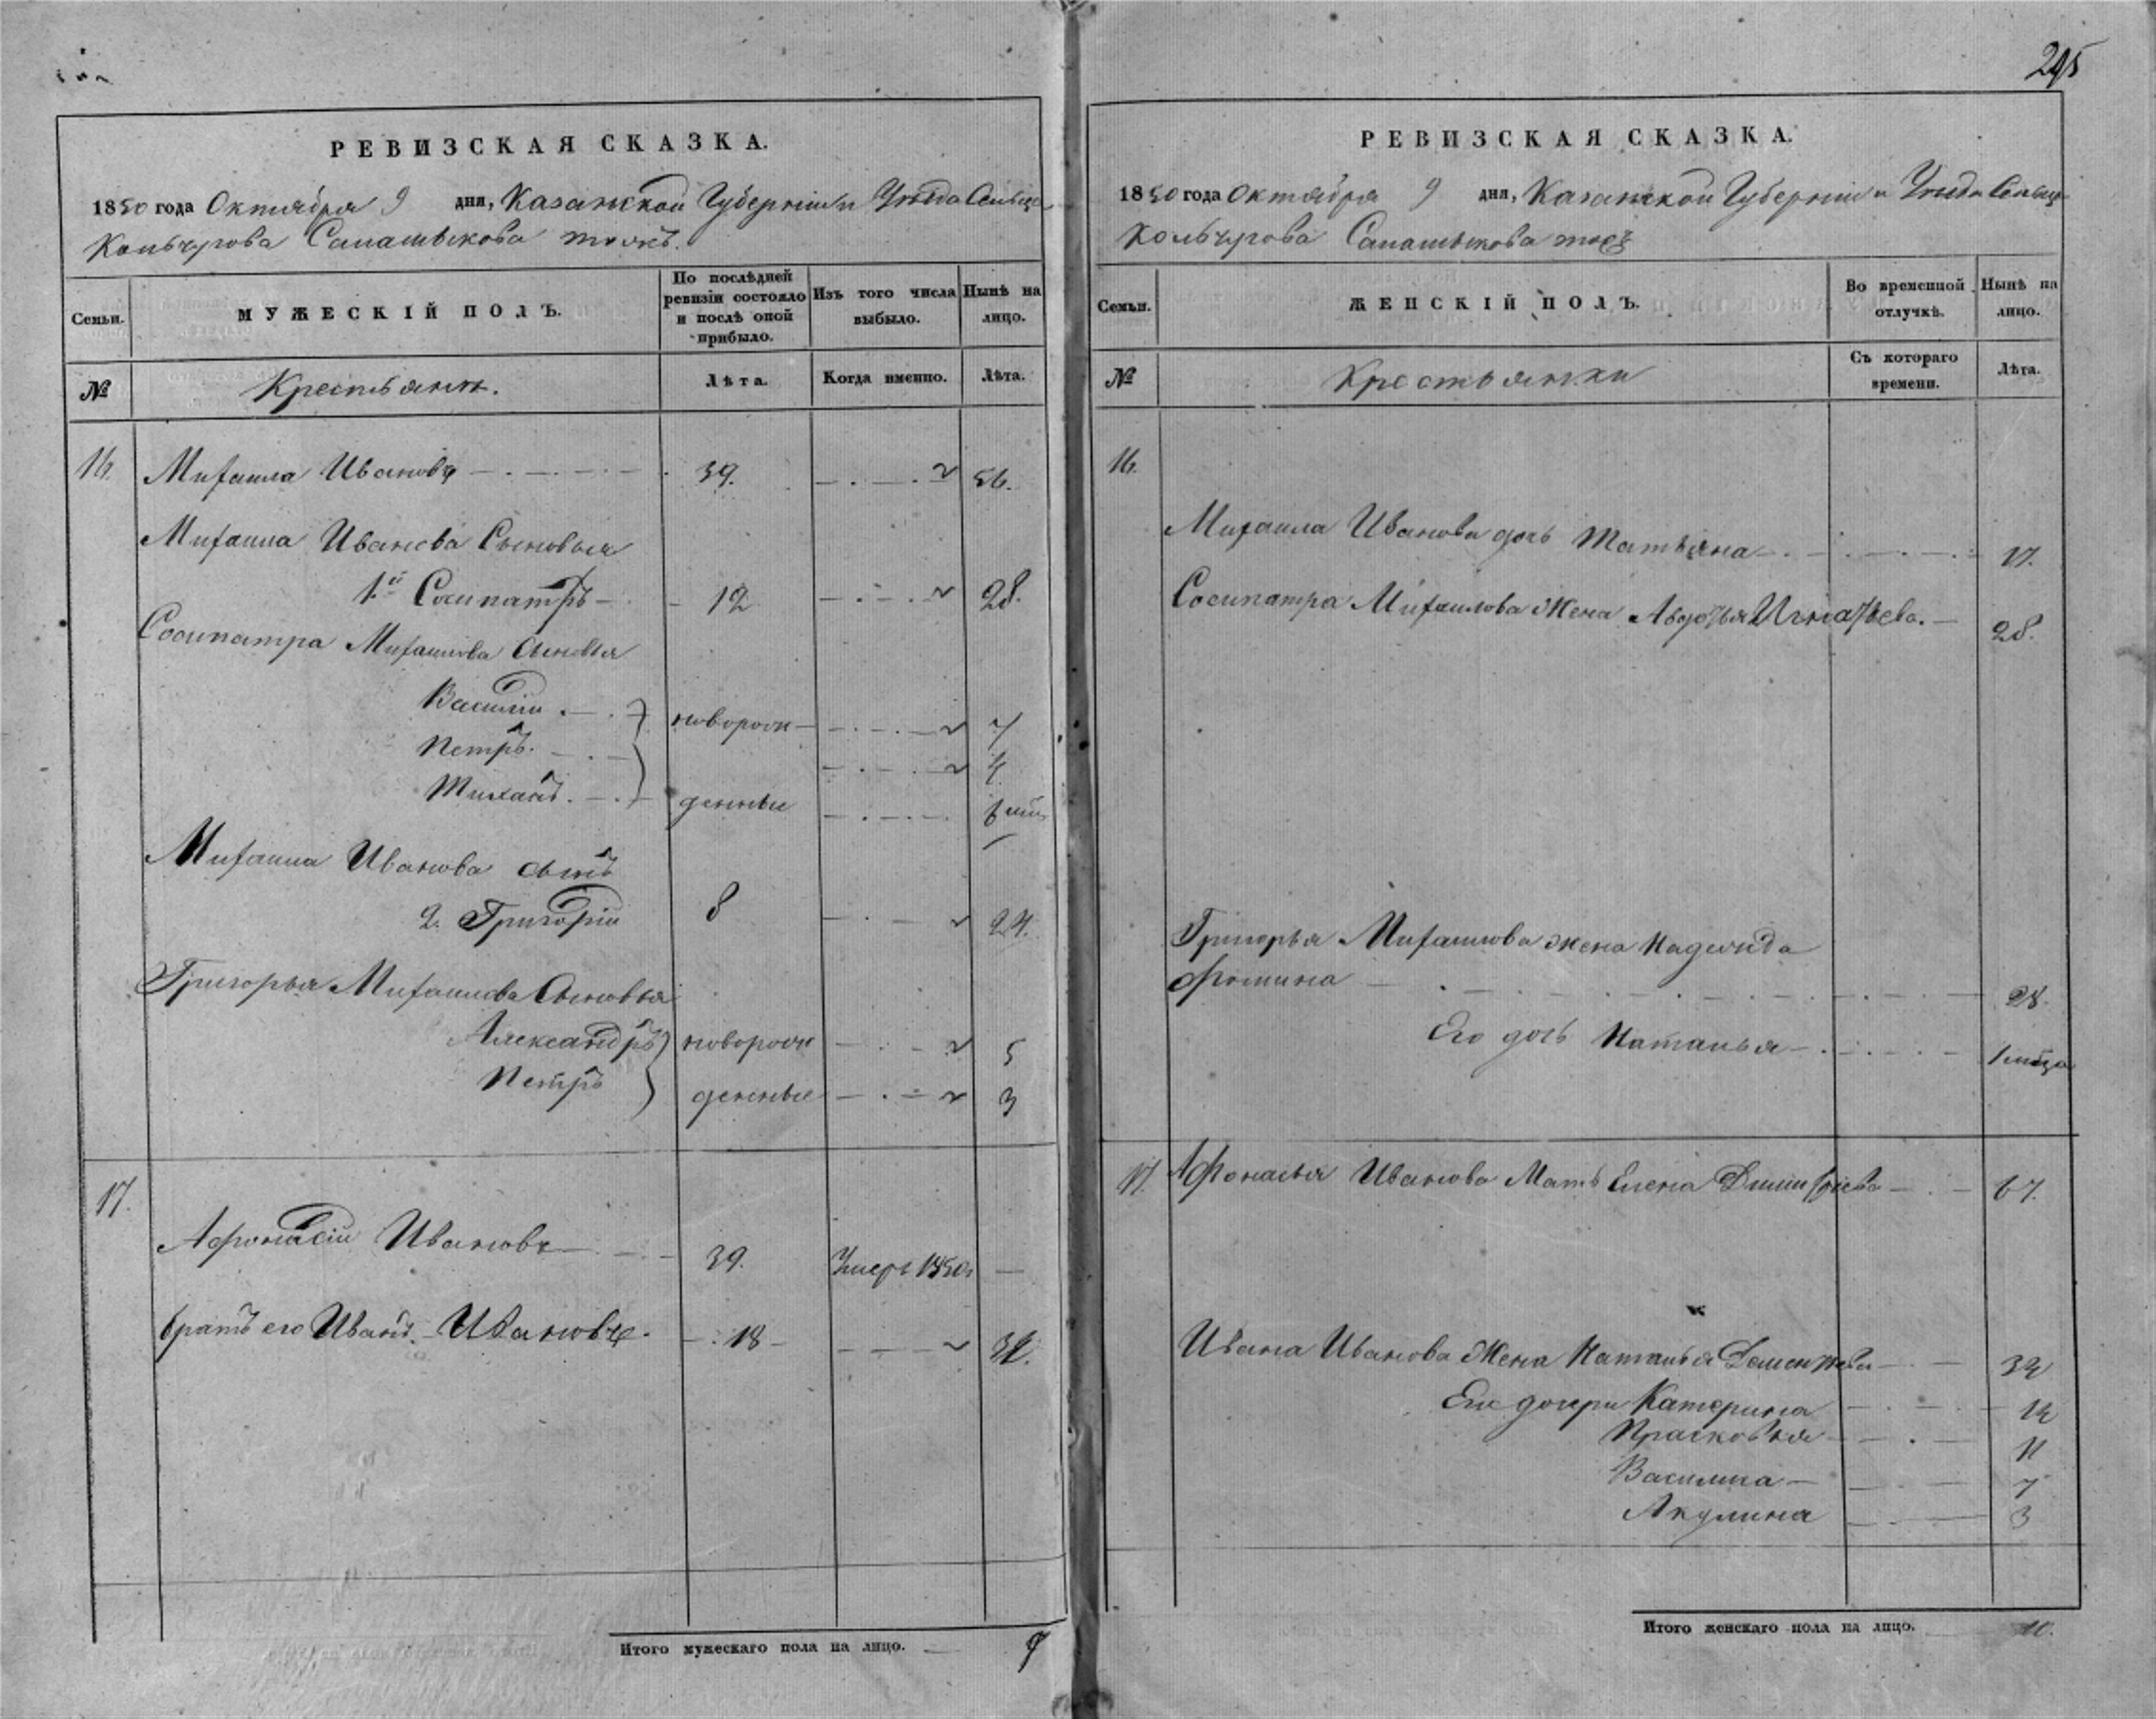 295
РЕВИЗСКАЯ СКАЗКА.
1850 года Октября 9 дня, Казанской Губерніи и Уѣзда Сельца
Кольчурова тожъ.
Семьи.
МУЖЕСКІЙ ПОЛЪ.
По послѣдней ревизіи состояло и послѣ оной прибыло.
Изъ того числа выбыло.
Нынѣ на лицо.
№
Крестьяне.
Лѣта.
Когда именно.
Лѣта.
16. Михаила Ивановъ 39. 56.
Михаила Иванова Сыновья
1й Сосипатръ 12 28.
Сосипатра Михаилова Сыновья
Василій новорож 7
Петръ 4
Тиханъ денные
Михаила Иванова сынъ
2. Григорій 8 24.
Григорья Михаилова Сыновья
Александръ новорож 5
Петръ денные 3
17.
Афонасій Ивановъ 39. Умеръ 1850
братъ его Иванъ Ивановъ 18 34.
Итого мужескаго пола на лицо. 9
РЕВИЗСКАЯ СКАЗКА.
1850 года Октября 9 дня, Казанской Губерніи и Уѣзда Сельца
Кольчурова тожъ
Семьи.
ЖЕНСКІЙ ПОЛЪ.
Во временной отлучкѣ.
Нынѣ на лицо.
№
Крестьянки
Съ котораго времени.
Лѣта.
16.
Михаила Иванова дочь Татьяна 17.
Сосипатра Михаилова Жена Авдотья Игнатьева. 28.
Григорья Михаилова жена Надежда
Фомина 28.
Его дочь Наталья
17. Афонасья Иванова Мать Елена Дмитріева 67.
Ивана Иванова Жена Наталья Дементьева 32
Его дочери Катерина 12
Прасковья 11
Василиса 7
Акулина 3
Итого женскаго пола на лицо. 10.